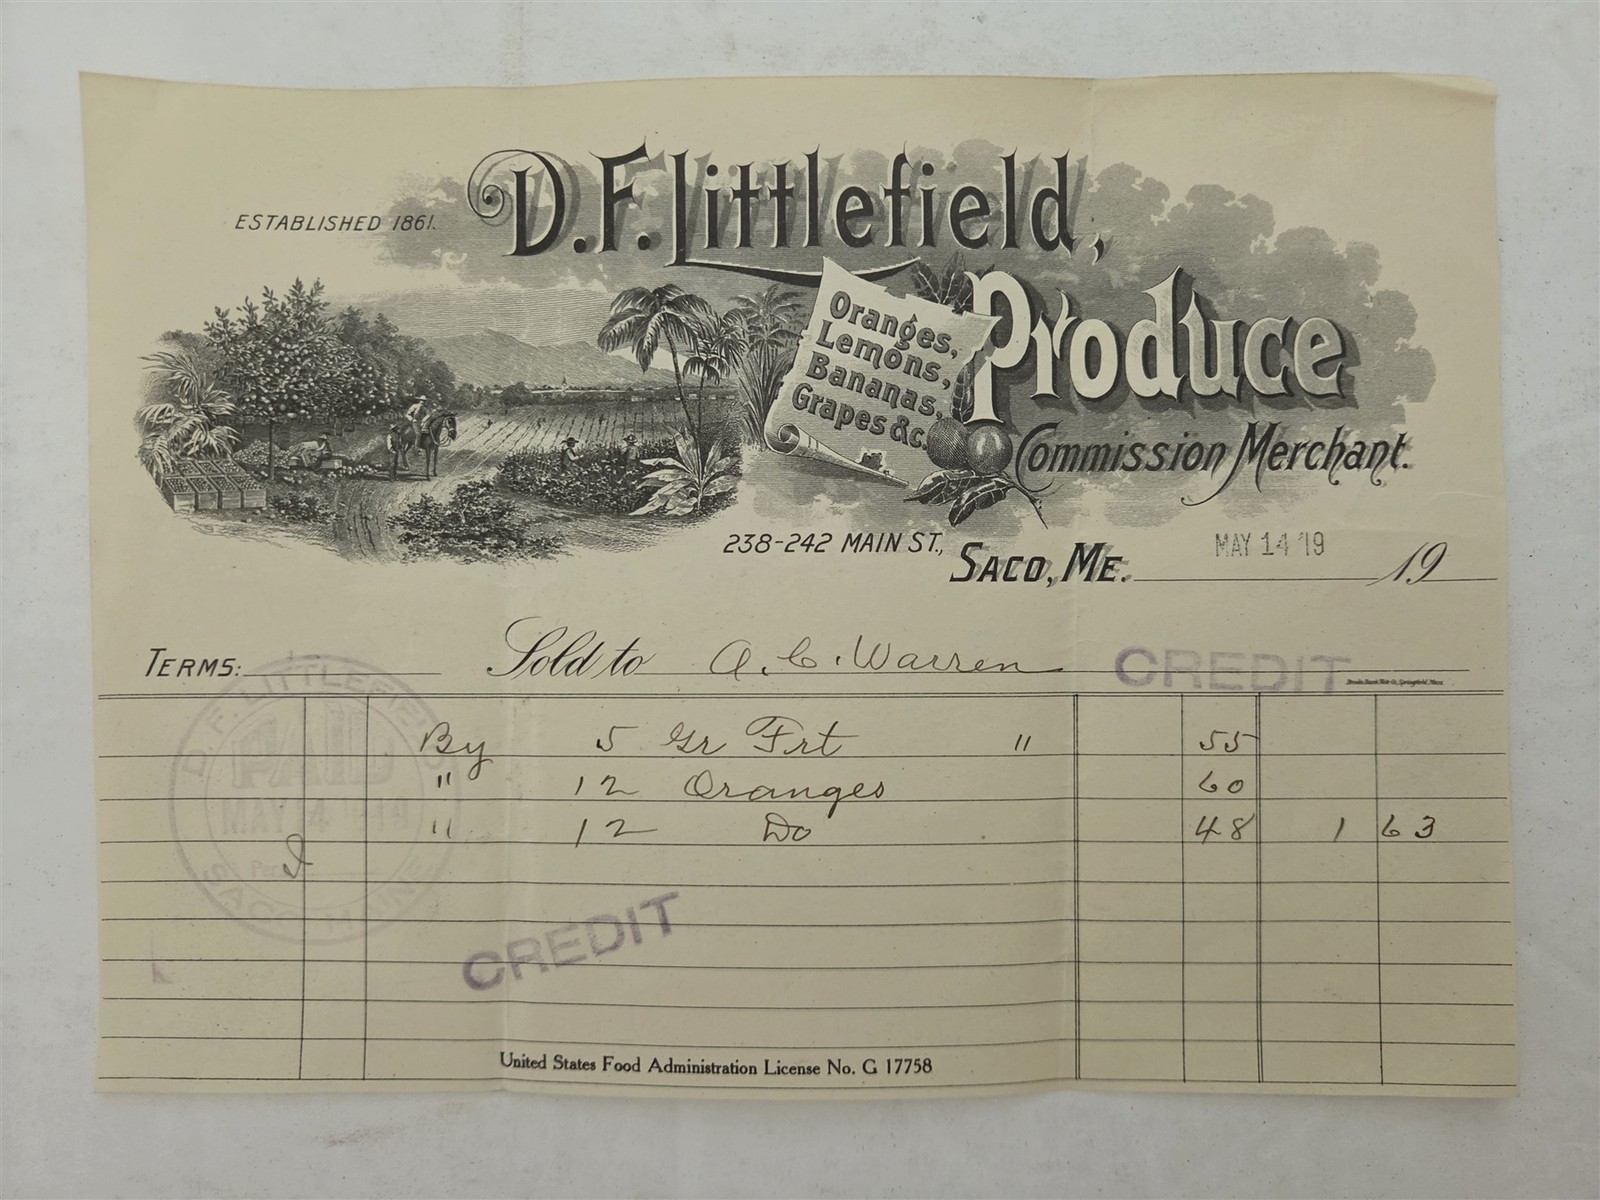 ESTABLISHED 1861.
D.F. Littlefield,
Produce
Oranges,
Lemons,
Bananas,
Grapes &c.
Commission Merchant.
238-242 MAIN ST., SACO, ME. MAY 14 '19 19
TERMS: Sold to A. C. Warren CREDIT
By 5 Gr Frt " 55
" 12 Oranges 60
" 12 Do 48 1 63
D. F. LITTLEFIELD
PAID
MAY 14 1919
Per
SACO MAINE
CREDIT
United States Food Administration License No. G 17758